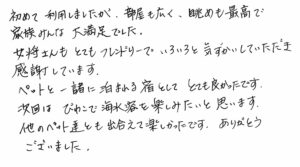 初めて利用しましたが、部屋も広く、眺めも最高で
家族みんな大満足でした。
女将さんもとてもフレンドリーでいろいろと気ずかいしていただき
感謝しています。
ペットと一諸に泊まれる宿としてとても良かったです。
次回はびわこで海水浴を楽しみたいと思います。
他のペット達とも出合えて楽しかったです。ありがとう
ございました。